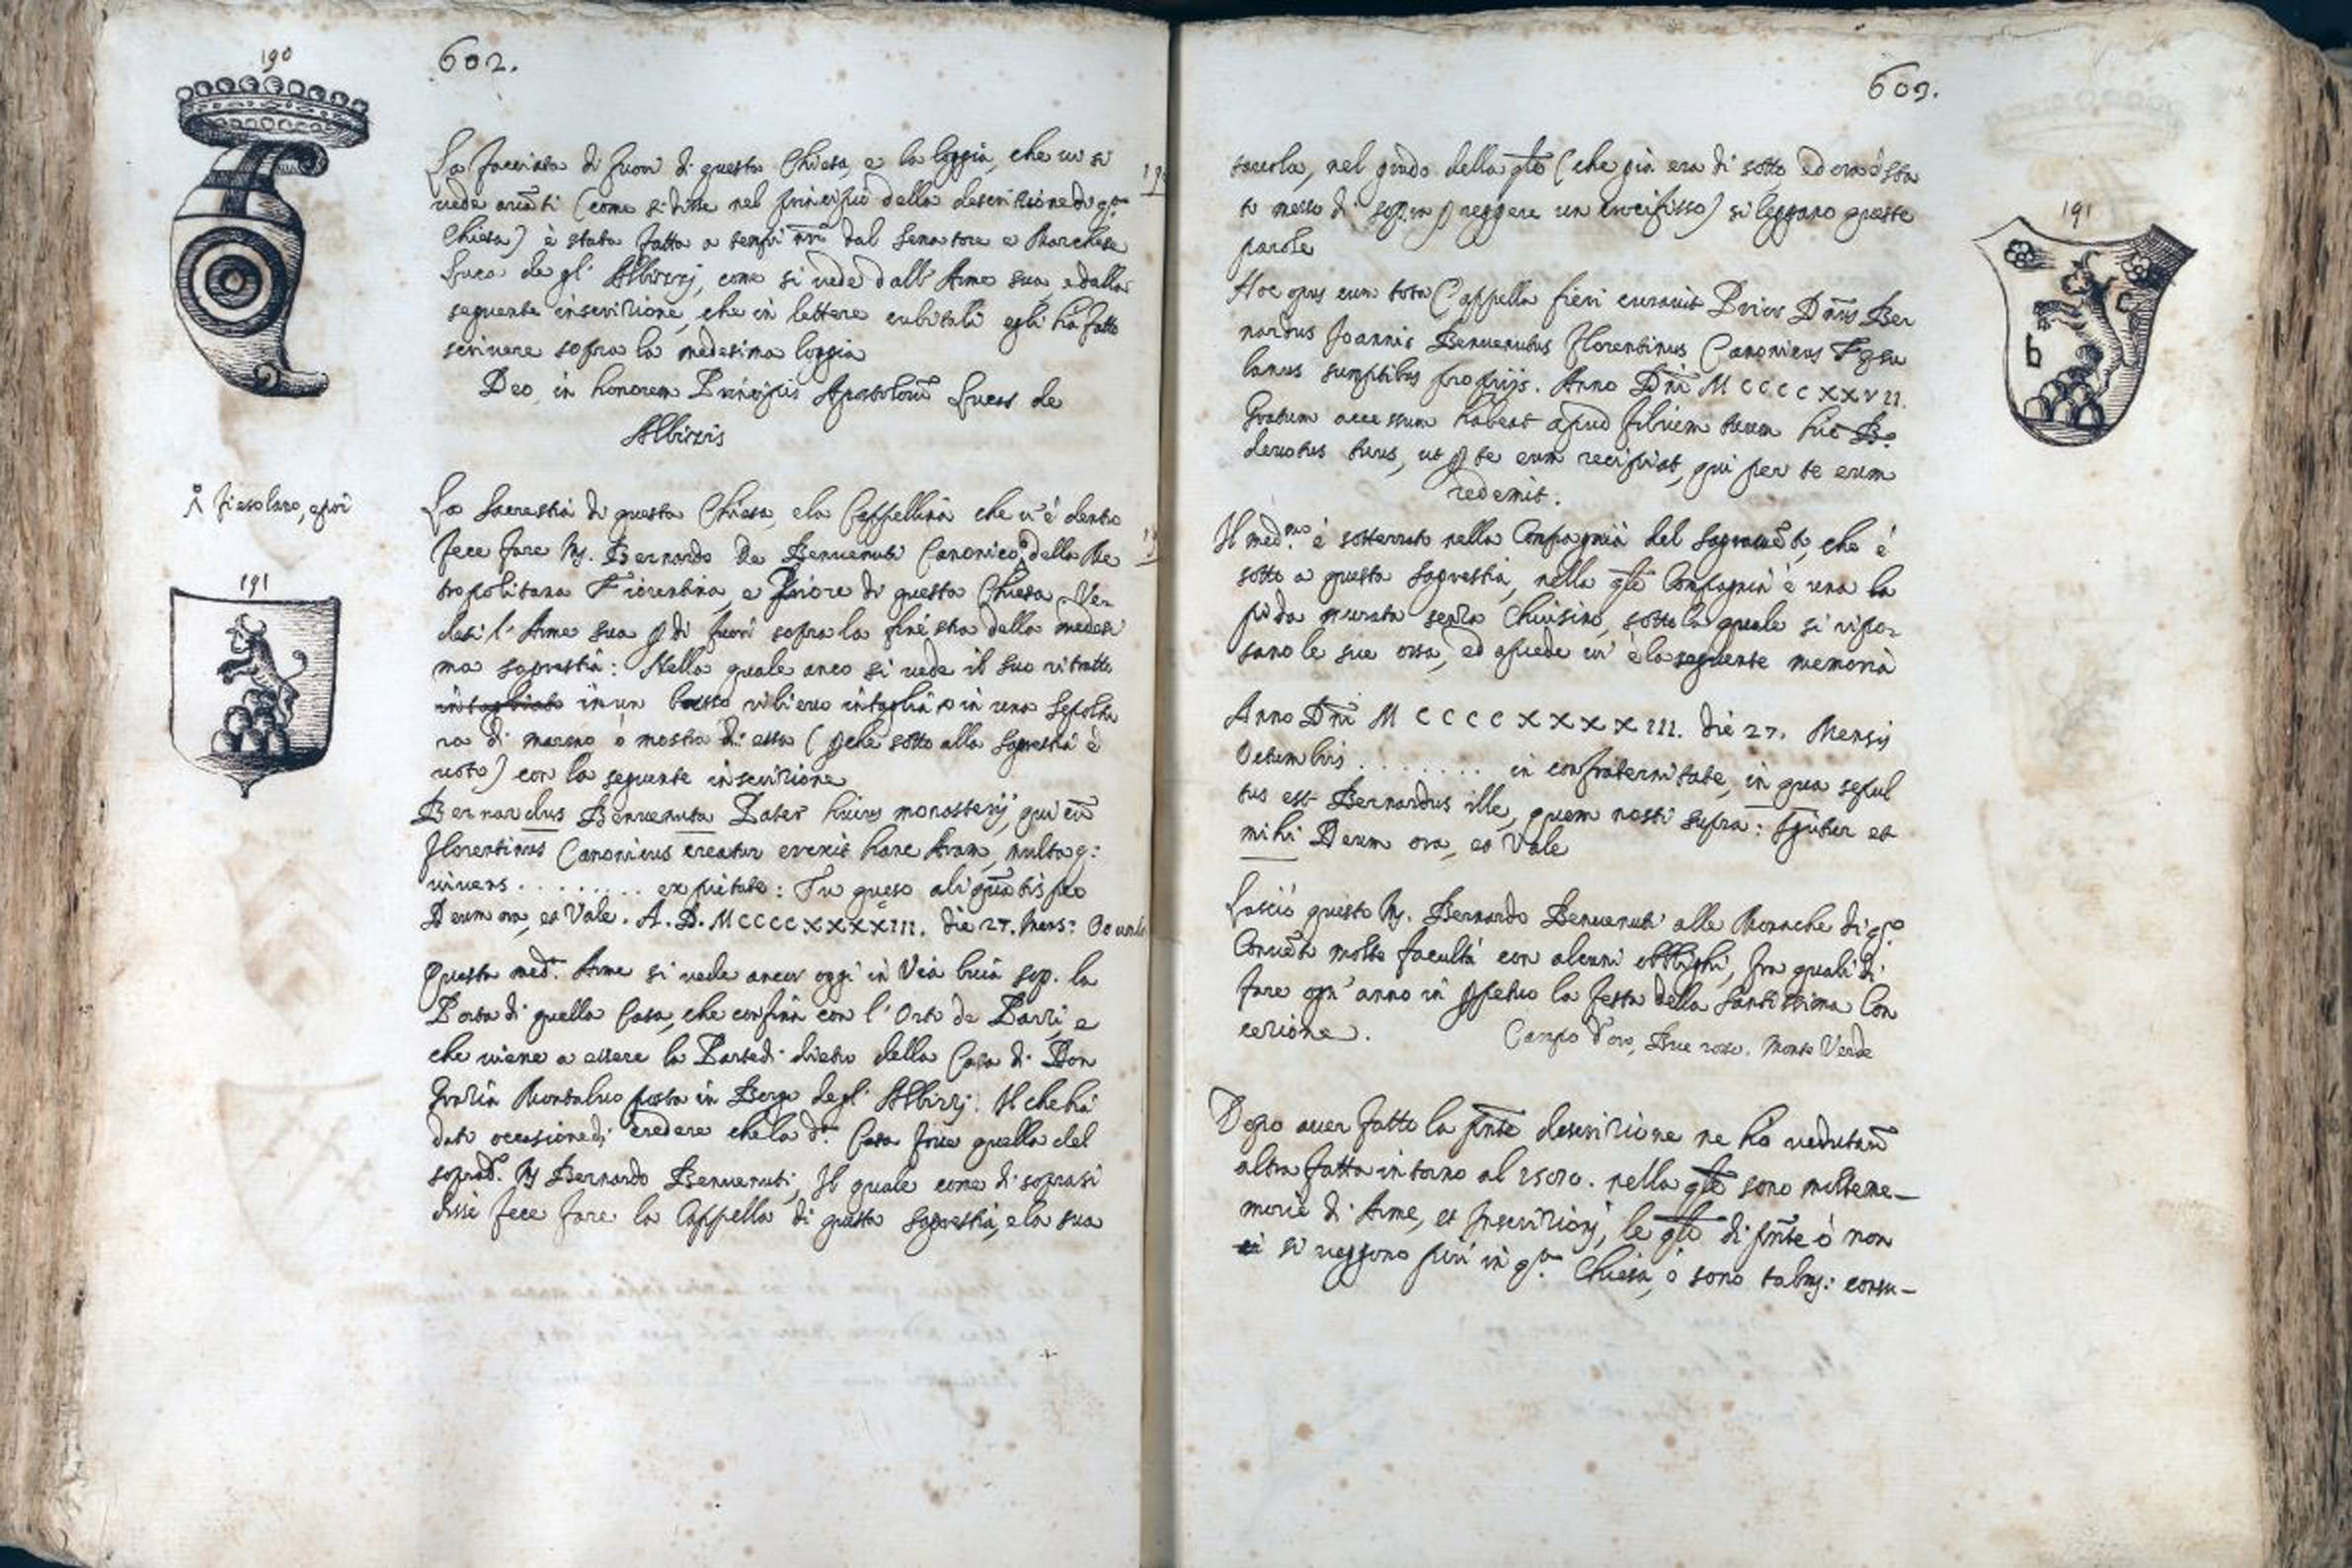 190
602.
La facciata di fuori di questa Chiesa, e la loggia, che vi si
vede avāti (come si disse nel principio della descritione di q.ta
Chiesa) è stata fatta a tempi nr̄i dal Senatore e Marchese
Luca de gl' Albizzj, come si vede dall' Arme sua, e dalla
seguente inscrizione, che in lettere cubitali egli ha fatto
scrivere sopra la medesima loggia
Deo, in honorem Principis Apostolorū Lucas de
Albizzis
^ fiesolano, e poi
La Sacrestia di questa Chiesa, e la Cappellina che v'è dentro
fece fare Mj. Bernardo De Benvenuti Canonico^ della Me
tropolitana Fiorentina, e Priore di questa Chiesa. Ve-
desi l'Arme sua p di fuori sopra la finestra della medesi
191
ma sagrestia: Nella quale anco si vede il suo ritratto
intagliato in un basso rilievo intagliato in una sepoltu
ra di marmo ò mostra di essa (pche sotto alla sagrestia è
voto) con la seguente inscrizione
Bernardus Benvenuta Pater huius monasterij, qui cū
Florentinus Canonicus creatur erexit hanc Aram, multa q:
vivens . . . . . . . . ex pietate: Tu queso aliquātispeo
Deum ora, et Vale. A. D. MCCCCXXXXIII. die 27. Mens:
Questa med.a Arme si vede ancor oggi in Via buia sop. la
Porta di quella Casa, che confina con l'Orto de Pazzi, e
che viene a essere la Parte di dietro della Casa di Don
Grazia Montalvo posta in Borgo degl' Albizzj. Il che ha
dato occasione di credere che la d.a Casa fosse quella del
soprad.o Mj Bernardo Benvenuti, Il quale come di sopra si
disse fece fare la Cappella di questa sagrestia, e la sua
603.
tavola, nel grado della qle (che già era di sotto, ed ora è sta
to messo di sopra p reggere un crocifisso) si leggano queste
parole
191
Hoc opus cum tota Cappella fieri curavit Prior Dn̄s Ber
nardus Joannis Benvenutus Florentinus Canonicus Fesu
lanus sumptibus proprijs. Anno Dn̄i MCCCCXXVII.
b
Gratum accessum habeat apud filium tuum hic B.
devotus tuus, ut p te eum recipiat, qui per te eum
redemit.
Il med.mo è sotterrato nella Compagnia del Sagramēto, che è
sotto a questa Sagrestia, nella qle Compagnia è una la
pida murata senza Chiusino, sotto la quale si ripo-
sano le sue ossa, ed a piede vi è la seguente memoria
Anno Dn̄i MCCCCXXXXIII. die 27. Mensis
Octumbris . . . . . . . . in confraternitate, in qua sepul
tus est Bernardus ille, quem nosti supra: Igitur et
mihi Deum ora, et Vale
Lasciò questo Mj. Bernardo Benvenuti alle Monache di q.o
Convēto molte facultà con alcuni obblighi, fra quali di
fare ogn'anno in ppetuo la festa della Santissima Con
cezione.
Campo d'oro, Bue rosso. Monte Verde
Dopo aver fatto la pn̄te descrizione ne ho veduta ū
altra fatta intorno al 1500. nella qle sono molte me-
morie di Arme, et Inscrizionj, le qle di pn̄te ò non
si veggono più in q.ta Chiesa, ò sono talm: consu-